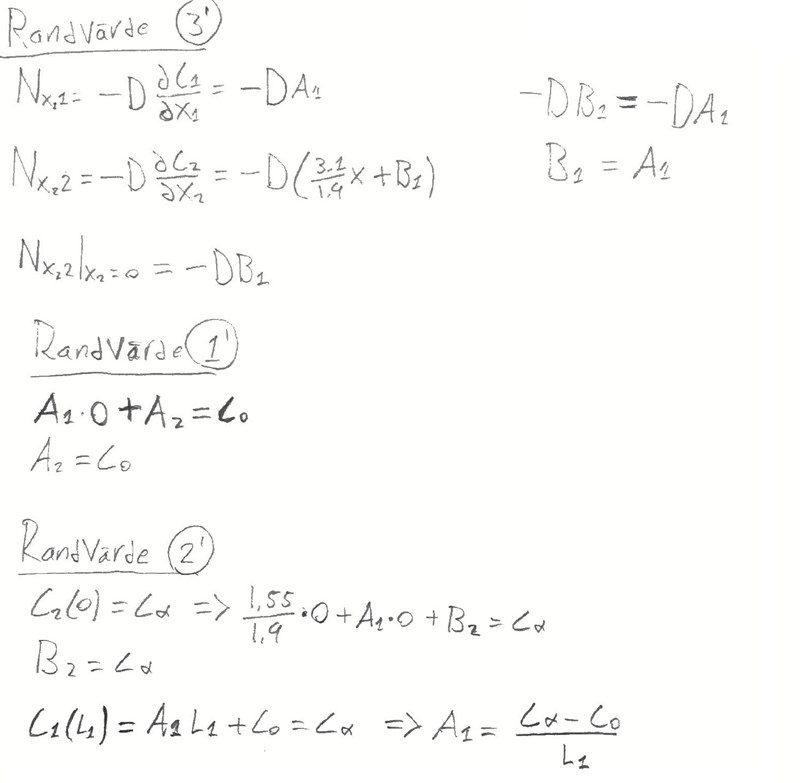 Randvärde 3'
N_{x,1} = -D ∂C_1/∂x_1 = -DA_1
-DB_1 = -DA_1
N_{x,2} = -D ∂C_2/∂x_2 = -D(3.1/1,9 x + B_1)
B_1 = A_1
N_{x,2}|_{x_2=0} = -DB_1
RandVärde 1'
A_1·0 + A_2 = C_0
A_2 = C_0
RandVärde 2'
C_2(0) = C_α => 1,55/1,9 ·0 + A_1·0 + B_2 = C_α
B_2 = C_α
C_1(L_1) = A_1 L_1 + C_0 = C_α => A_1 = (C_α - C_0)/L_1